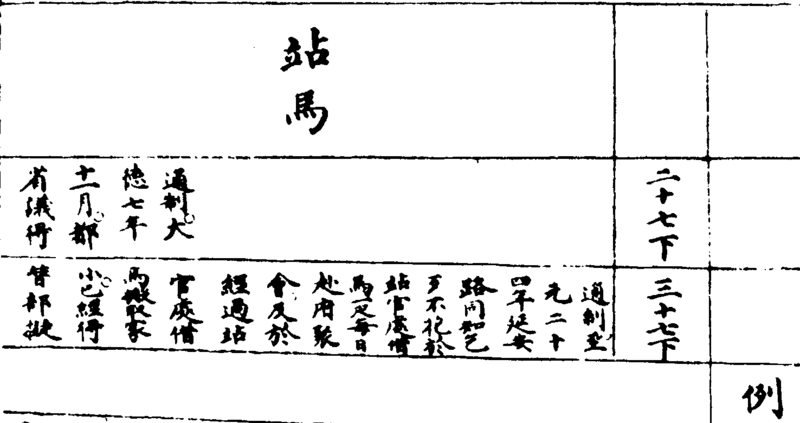 例
二十七下
三十七下
站馬
通制。大
德七年
十一月。都
省議得
通制。至
元二十
四年延安
路同知乞
歹不花於
站官處借
馬一疋每日
赴府聚
會及於
經過站
官處借
馬搬取家
小。已經得
替部擬